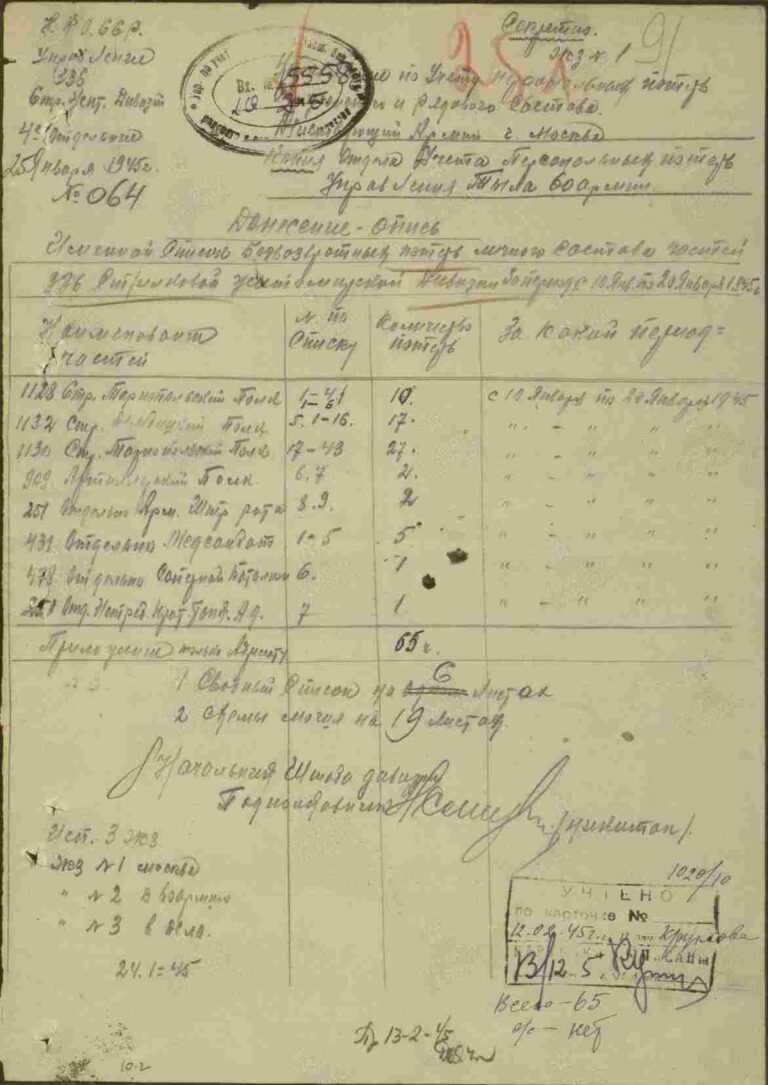 Н.К.О.С.С.С.Р.
Управление
336
Стр. Жит. Дивизии
4е Отделение
25 Января 1945г.
№ 064
Секретно.
Экз № 1
91
25
Вх. №
15558
по Учету Персональных потерь
и Рядового Состава.
Действующей Армии г. Москва
Копия Отдела Учета Персональных потерь
Управления Тыла 60 армии.
Донесение-опись
Именной Список Безвозвратных потерь личного состава частей
336 Стрелковой Житомирской Дивизии за период с 10 Янв. по 20 Января 1945г
Наименовант частей
N. по Списку
Количество потерь
За какой период=
1128 Стр. Тарнопольский Полк 10. с 10 Января по 20 Января 1945
1132 Стр. Полк 5. 1-16. 17. " - " " "
1130 Стр. Тарнопольский Полк 17-43 27. " - " " "
909 Артиллерский Полк 6.7 2. " - " " "
251 Отдельно Арм. Штр рота 8.9. 2 " - " " "
431 Отдельно Медсанбат 1-5 5 " - " " "
478 Отдельно Саперной Баталион 6. 1 " - " " "
Отд. Истреб. Прот. Танк. Ад. 7 1 " - " " "
Приложение только Адресату 65 ч.
1 Сводный Список на 6 Листах
2 Схемы могил на 19 Листах
Начальник Штаба дивизии
Подполковник /Никитин/.
Исп. 3 экз
Экз № 1 Москва
" № 2 В 60 армию
" № 3 в дело.
24.1=45
1028/10
УЧТЕНО
по карточке №
12.02.45г. Круглова
В/12.5.
Всего-65
о/с- нет
13-2-45
10.2